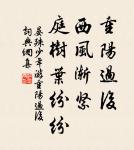 重陽過後
西風漸緊
庭樹葉紛紛
晏殊少年游重陽過後
詞典網集